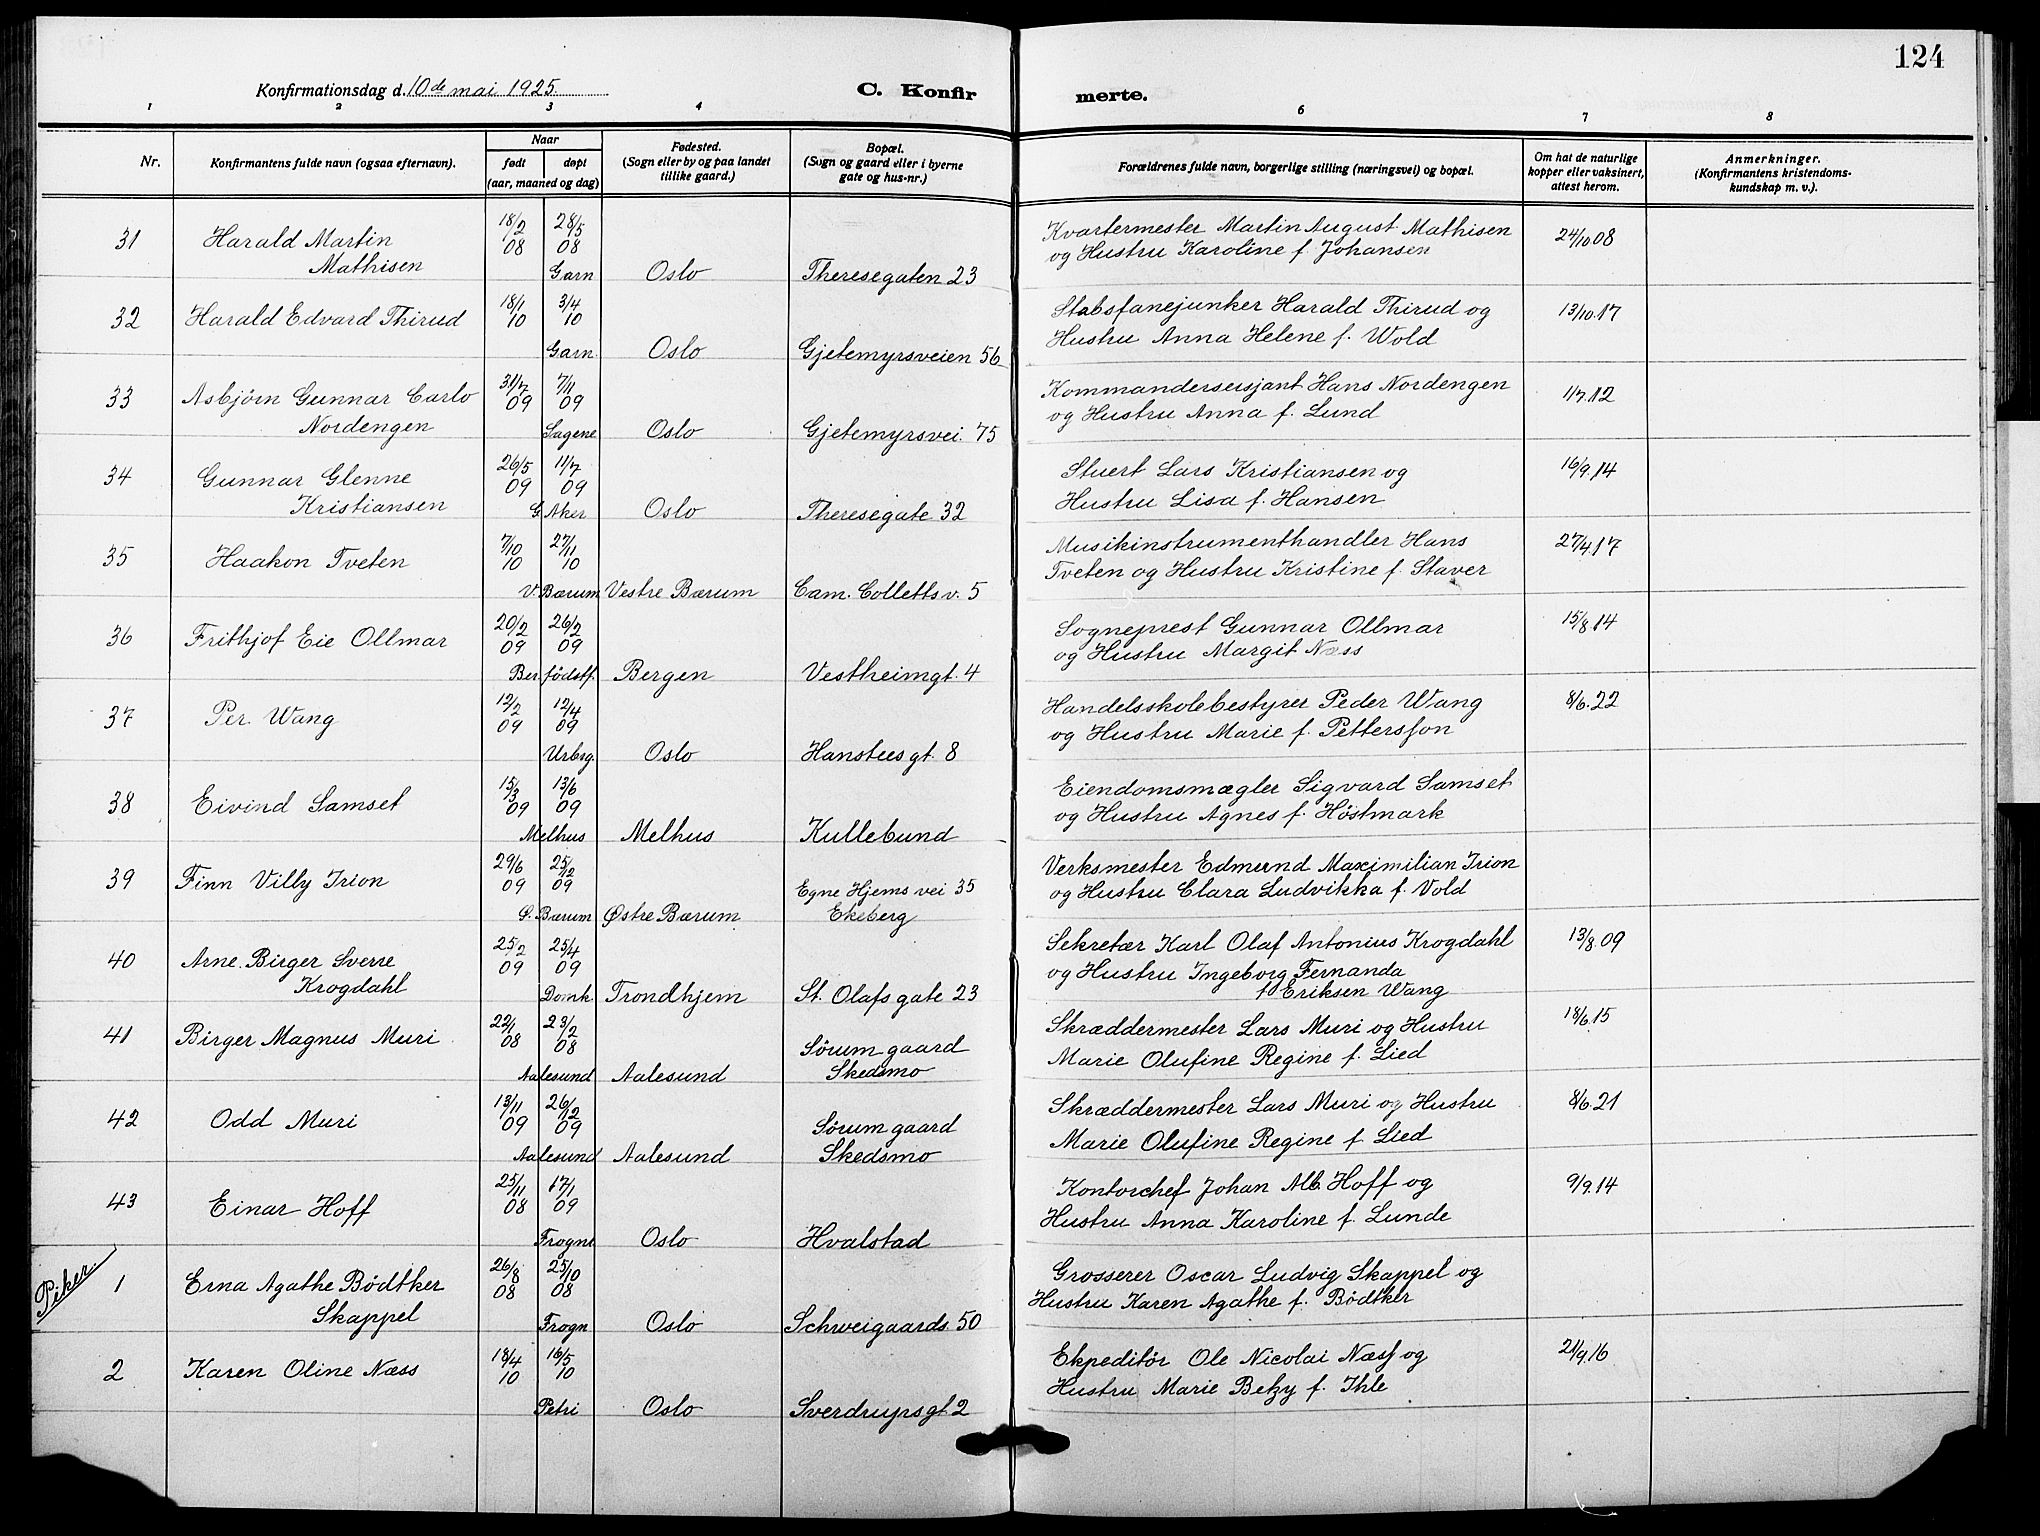 124
Konfirmationsdag d. 10de mai 1925.
C. Konfirmerte.
1 2 3 4 6 7 8
Nr.
Konfirmantens fulde navn (ogsaa efternavn).
Naar
født
døpt
(aar, maaned og dag)
Fødested.
(Sogn eller by og paa landet
tillike gaard.)
Bopæl.
(Sogn og gaard eller i byerne
gate og hus-nr.)
Forældrenes fulde navn, borgerlige stilling (næringsvei) og bopæl.
Om hat de naturlige
kopper eller vaksinert,
attest herom.
Anmerkninger.
(Konfirmantens kristendoms-
kundskap m. v.).
31 Harald Martin 18/2 08 28/5 08 Kvartermester Martin August Mathisen 24/10 08
Mathisen Garn Oslo Theresegaten 23 og Hustru Karoline f. Johansen
32 Harald Edvard Thirud 18/1 10 3/4 10 Stabsfanejunker Harald Thirud og 13/10.17
Garn. Oslo Gjetemyrsveien 56 Hustru Anna Helene f. Wold
33 Asbjørn Gunnar Carlo 31/7 09 7/11 09 Kommandersersjant Hans Nordengen 1/7.12
Nordengen Sagene Oslo Gjetemyrsvei. 75 og Hustru Anna f. Lund
34 Gunnar Glenne 26/5 09 11/7 09 Stuert Lars Kristiansen og 16/9.14
Kristiansen G. Aker Oslo Theresegate 32 Hustru Lisa f. Hansen
35 Haakon Tveten 7/10 10 27/11 10 Musikinstrumenthandler Hans 27/4.17
V. Bærum Vestre Bærum Cam. Colletts v. 5 Tveten og Hustru Kristine f. Staver
36 Frithjof Eie Ollmar 20/2 09 26/2 09 Sogneprest Gunnar Ollmar 15/8.14
Ber. fødstf. Bergen Vestheimgt. 4 og Hustru Margit Næss
37 Per Wang 12/2 09 12/4 09 Handelsskolebestyrer Peder Wang 8/6.22
Urbsg. Oslo Hanstees gt. 8 og Hustru Marie f. Pettersson
38 Eivind Samset 15/3 09 13/6 09 Eiendomsmægler Sigvard Samset
Melhus Melhus Kullebund og Hustru Agnes f. Høstmark
39 Finn Villy Irion 29/6 09 25/12 09 Egne Hjems vei 35 Verksmester Edmund Maximilian Irion
Ø. Bærum Østre Bærum Ekeberg og Hustru Clara Ludvikka f. Vold
40 Arne Birger Sverre 25/2 09 25/4 09 Sekretær Karl Olaf Antonius Krogdahl 13/8.09
Krogdahl Domk. Trondhjem St. Olafs gate 23 og Hustru Ingeborg Fernanda
f. Eriksen Wang
41 Birger Magnus Muri 22/1 08 23/2 08 Sørum gaard Skræddermester Lars Muri og Hustru 18/6.15
Aalesund Aalesund Skedsmo Marie Olufine Regine f. Lied
42 Odd Muri 13/11 09 26/12 09 Sørum gaard Skræddermester Lars Muri og Hustru 8/6.21
Aalesund Aalesund Skedsmo Marie Olufine Regine f. Lied
43 Einar Hoff 25/11 08 17/1 09 Kontorchef Johan Alb. Hoff og 9/9.14
Frogne Oslo Hvalstad Hustru Anna Karoline f. Lunde
Piker.
1 Erna Agathe Bødtker 26/8 08 25/10 08 Grosserer Oscar Ludvig Skappel og
Skappel Frogn Oslo Schweigaards. 50 Hustru Karen Agathe f. Bødtker
2 Karen Oline Næss 18/4 10 16/5 10 Ekpeditør Ole Nicolai Næss og 21/9.16
Petri Oslo Sverdrupsgt. 2 Hustru Marie Betzy f. Ihle